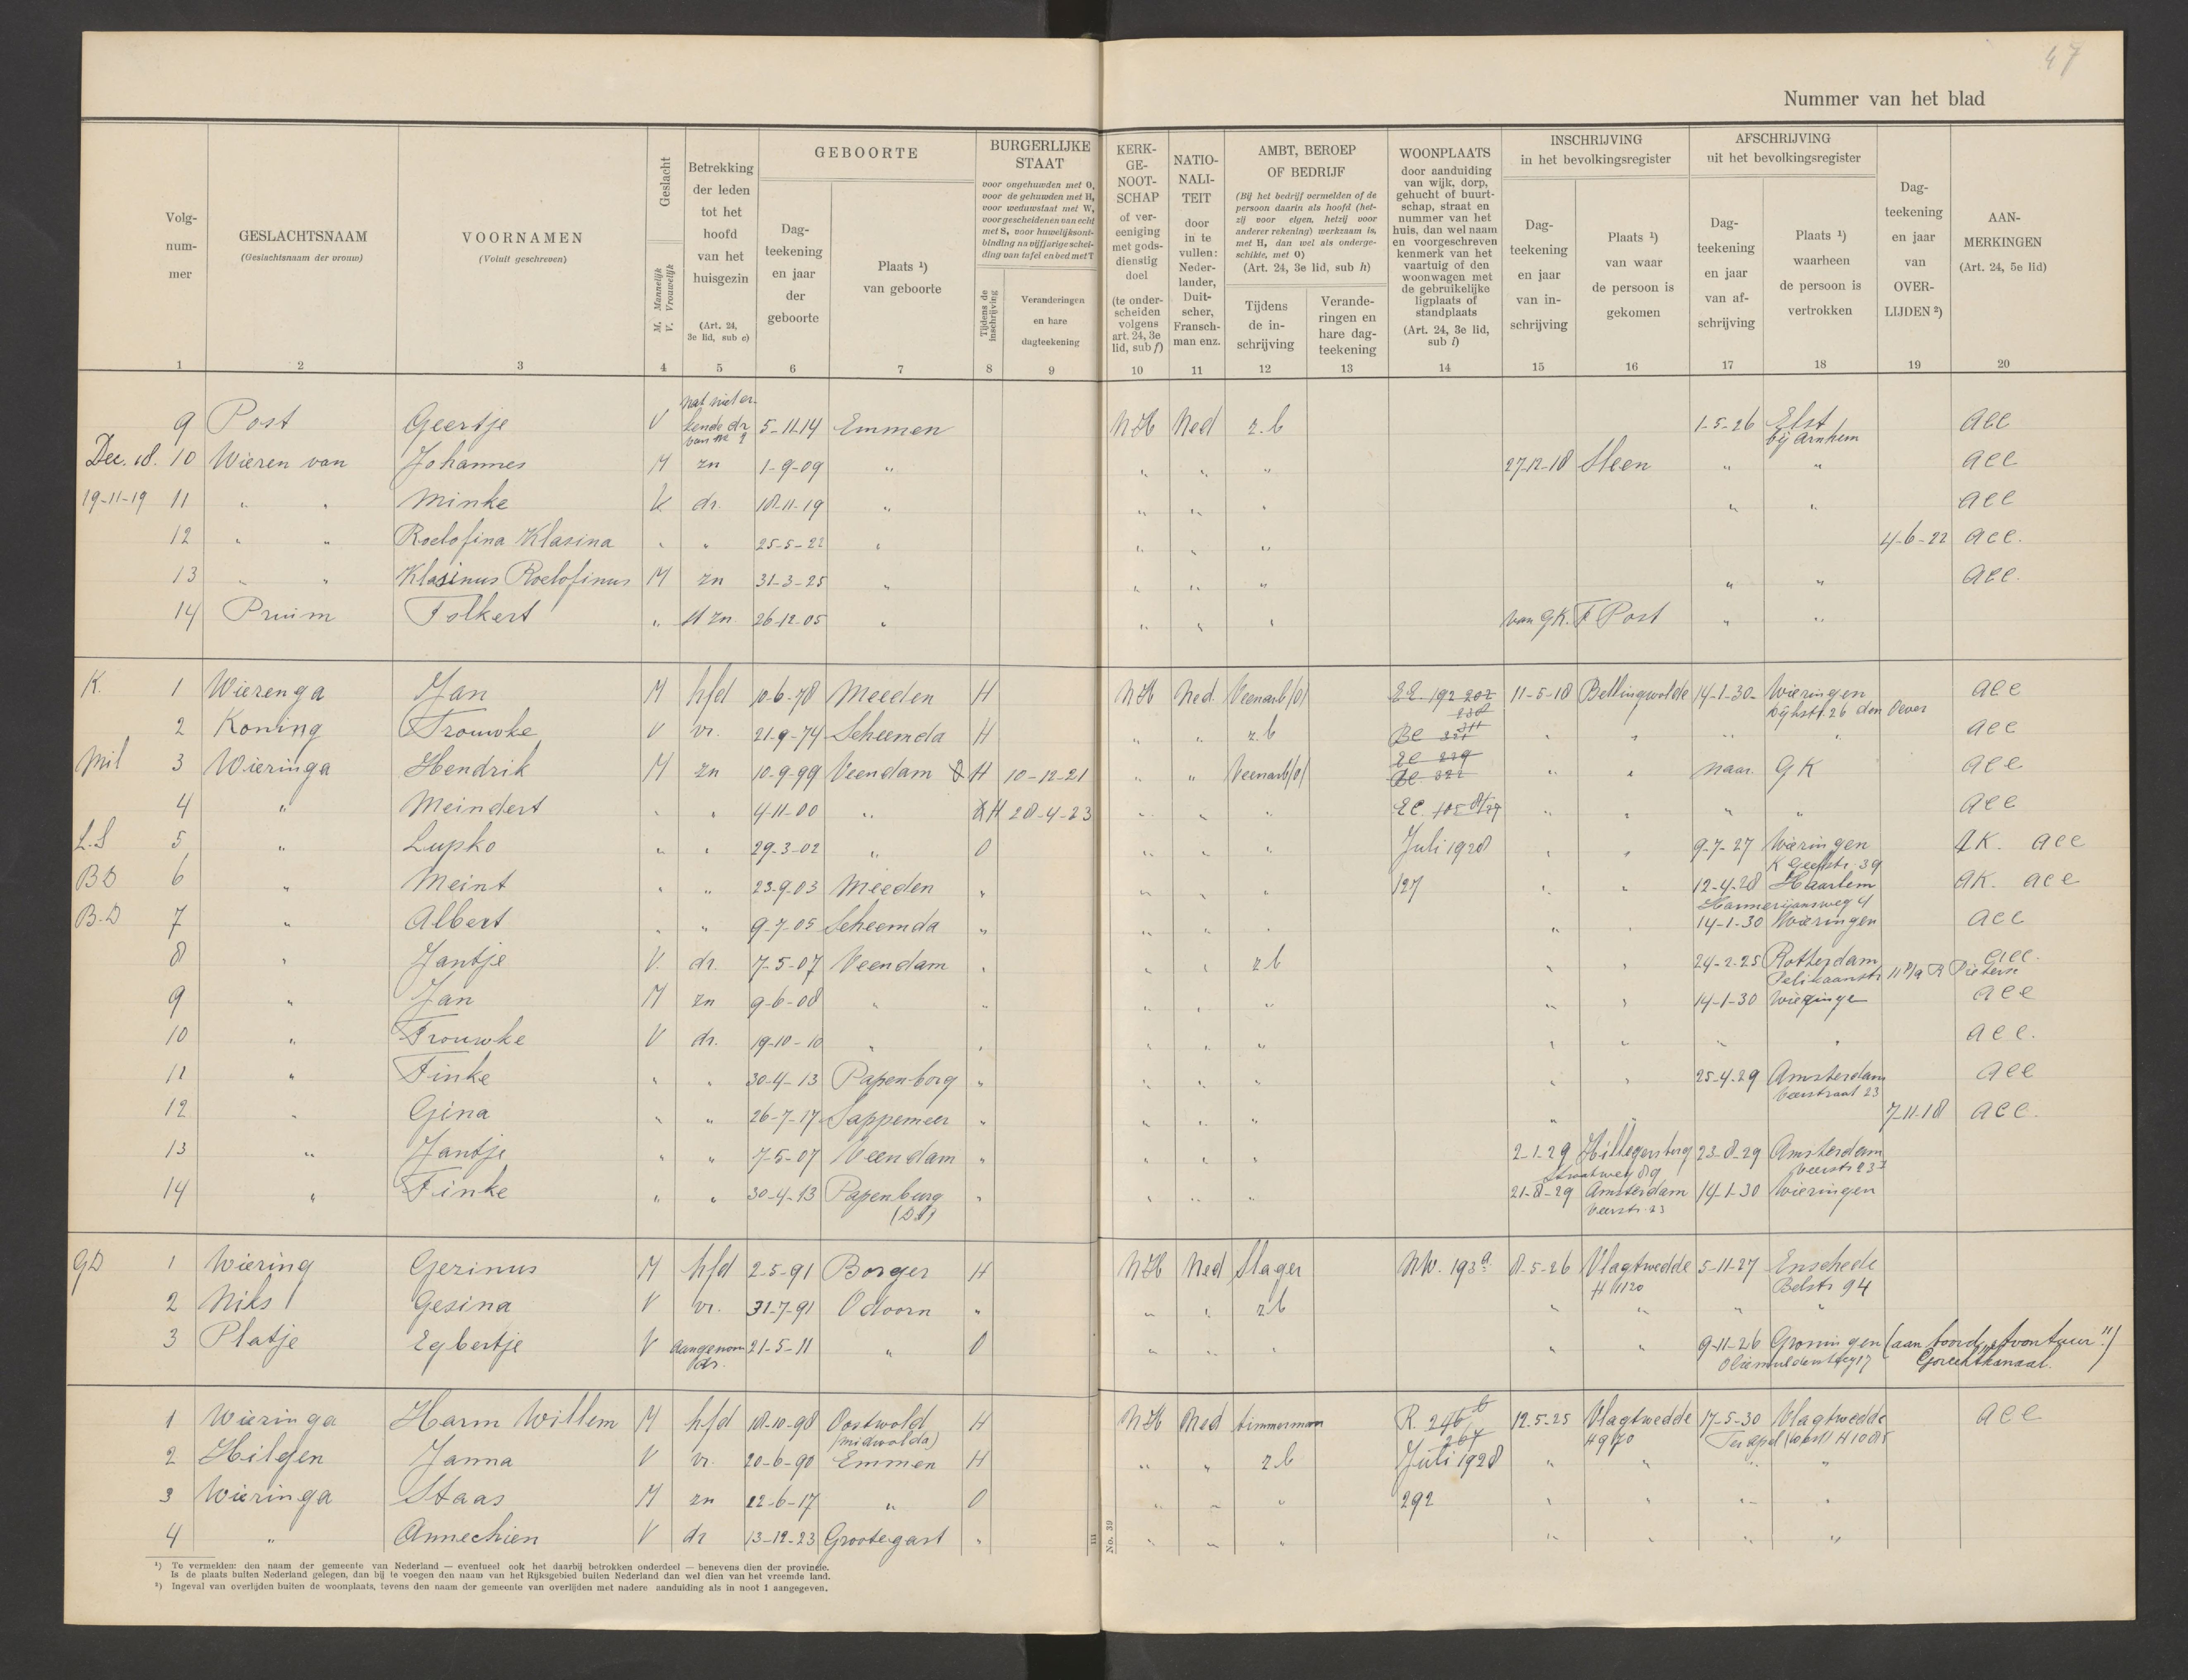 47
Nummer van het blad
Volgnummer
GESLACHTSNAAM
(Geslachtsnaam der vrouw)
VOORNAMEN
(Voluit geschreven)
Geslacht
M. Mannelijk
V. Vrouwelijk
Betrekking der leden tot het hoofd van het huisgezin
(Art. 24, 3e lid, sub e)
GEBOORTE
Dagteekening en jaar der geboorte
Plaats ¹) van geboorte
BURGERLIJKE STAAT
voor ongehuwden met O, voor de gehuwden met H, voor weduwstaat met W, voor gescheidenen van echt met S, voor huwelijksontbinding na vijfjarige scheiding van tafel en bed met T
Tijdens de inschrijving
Veranderingen en hare dagteekening
KERKGENOOTSCHAP
of vereeniging met godsdienstig doel
(te onderscheiden volgens art. 24, 3e lid, sub f)
NATIONALITEIT
door in te vullen: Nederlander, Duitscher, Franschman enz.
AMBT, BEROEP OF BEDRIJF
(Bij het bedrijf vermelden of de persoon daarin als hoofd (hetzij voor eigen, hetzij voor anderer rekening) werkzaam is, met H, dan wel als ondergeschikte, met O)
(Art. 24, 3e lid, sub h)
Tijdens de inschrijving
Veranderingen en hare dagteekening
WOONPLAATS
door aanduiding van wijk, dorp, gehucht of buurtschap, straat en nummer van het huis, dan wel naam en voorgeschreven kenmerk van het vaartuig of den woonwagen met de gebruikelijke ligplaats of standplaats
(Art. 24, 3e lid, sub i)
INSCHRIJVING
in het bevolkingsregister
Dagteekening en jaar van inschrijving
Plaats ¹) van waar de persoon is gekomen
AFSCHRIJVING
uit het bevolkingsregister
Dagteekening en jaar van afschrijving
Plaats ¹) waarheen de persoon is vertrokken
Dagteekening en jaar van OVERLIJDEN ²)
AANMERKINGEN
(Art. 24, 5e lid)
1 2 3 4 5 6 7 8 9 10 11 12 13 14 15 16 17 18 19 20
9 Post Geertje V nat niet erkende dr van no 2 5-11-14 Emmen NH Ned z.b 1-5-26 Elst bij Arnhem acc
Dec. 18. 10 Wieren van Johannes M zn 1-9-09 " " " " 27-12-18 Sleen " " acc
19-11-19 11 " " Minke V dr. 18-11-19 " " " " " " acc
12 " " Roelofina Klasina " " 25-5-22 " " " " 4-6-22 acc.
13 " " Klasinus Roelofinus M zn 31-3-25 " " " " " " acc.
14 Pruim Folkert " st zn 26-12-05 " " " " van GK. F Post " "
K. 1 Wierenga Jan M hfd 10-6-78 Meeden H NH Ned. Veenarb(o) EE 192 202 11-5-18 Bellingwolde 14-1-30 Wieringen
238 Dijkstr. 26 den Oever acc
2 Koning Trouwke V vr. 21-9-74 Scheemda H " " z.b " " " " acc
Mil 3 Wieringa Hendrik M zn 10-9-99 Veendam O H 10-12-21 " " Veenarb(o) " " naar GK acc
4 " Meindert " " 4-11-00 " H 28-4-23 " " " Ec. 105 " " " " acc
L.S 5 " Lupko " " 29-3-02 " O " " " Juli 1928 " " 9-7-27 Wieringen AK. acc
BD 6 " Meint " " 23-9-03 Meeden " " " " 127 " " 12-4-28 Haarlem AK. acc
B-D 7 " Albert " " 9-7-05 Scheemda " " " " " " 14-1-30 Wieringen acc
8 " Jantje V. dr. 7-5-07 Veendam " " " z b " " 24-2-25 Rotterdam acc.
9 " Jan M zn 9-6-08 " " " " " " " 14-1-30 Wieringe acc
10 " Trouwke V dr. 19-10-10 " " " " " " " " " acc.
11 " Finke " " 30-4-13 Papenborg " " " " " " 25-4-29 Amsterdam acc
12 " Gina " " 26-7-17 Sappemeer " " " " " " 7-11-18 acc.
13 " Jantje " " 7-5-07 Veendam " " " " 2-1-29 Hillegersberg 23-8-29 Amsterdam
Straatweg 89
14 " Finke " " 30-4-13 Papenburg " " " " 21-8-29 Amsterdam 14-1-30 Wieringen
GD 1 Wiering Gezinus M hfd 2-5-91 Borger H NH Ned Slager NW. 193a. 8-5-26 Vlagtwedde 5-11-27 Enschede
H 1120 Belstr 94
2 Niks Gesina V vr. 31-7-91 Odoorn " " " z b " " " "
3 Platje Egbertje V aangenom dr. 21-5-11 " O " " " " " 9-11-26 Groningen (aan boord „Avontuur")
1 Wieringa Harm Willem M hfd 18-10-98 Oostwold H NH Ned timmerman R. 246 b 12-5-25 Vlagtwedde 17-5-30 Vlagtwedde acc
(Midwolda) 267 H 970
2 Hilgen Janna V vr. 20-6-90 Emmen H " " z b Juli 1928 " " " "
3 Wieringa Staas M zn 22-6-17 " O " " " 292 " " " "
4 " Annechien V dr 13-12-23 Grootegast " " " " " " " "
¹) Te vermelden: den naam der gemeente van Nederland — eventueel ook het daarbij betrokken onderdeel — benevens dien der provincie.
Is de plaats buiten Nederland gelegen, dan bij te voegen den naam van het Rijksgebied buiten Nederland dan wel dien van het vreemde land.
²) Ingeval van overlijden buiten de woonplaats, tevens den naam der gemeente van overlijden met nadere aanduiding als in noot 1 aangegeven.
III
No. 39